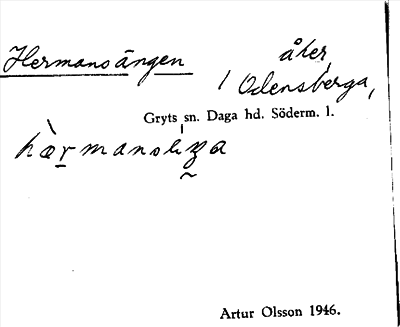 Hermansängen
åker,
/ Odensberga,
Gryts sn. Daga hd. Söderm. l.
Artur Olsson 1946.